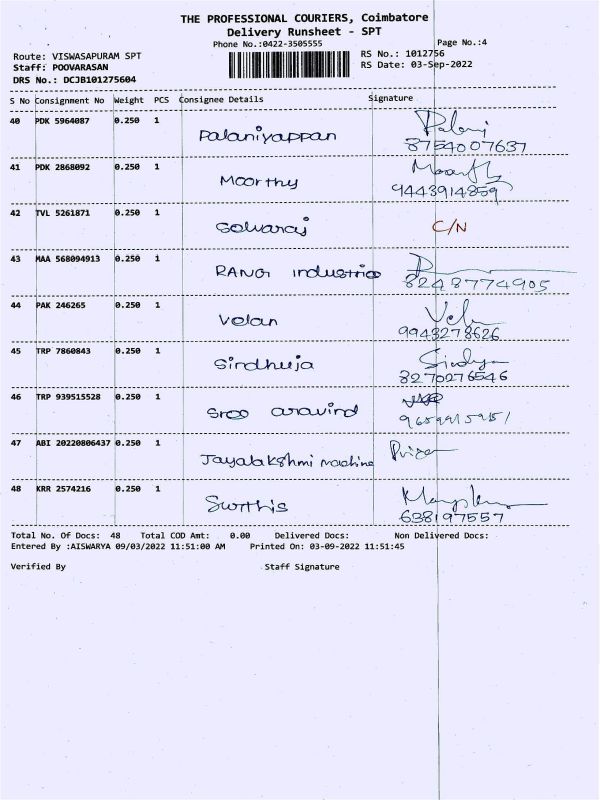 THE PROFESSIONAL COURIERS, Coimbatore
Delivery Runsheet - SPT
Phone No.:0422-3505555 Page No.:4
Route: VISWASAPURAM SPT RS No.: 1012756
Staff: POOVARASAN RS Date: 03-Sep-2022
DRS No.: DCJB101275604
S No Consignment No Weight PCS Consignee Details Signature
40 PDK 5964087 0.250 1 Palaniyappan Palani
8754007637
41 PDK 2868092 0.250 1 Moorthy
9443914859
42 TVL 5261871 0.250 1 Selvaraj C/N
43 MAA 568094913 0.250 1 RANGI industries
8248774905
44 PAK 246265 0.250 1 Velan Vel
9943278626
45 TRP 7860843 0.250 1 Sindhuja Sindhuja
8270276546
46 TRP 939515528 0.250 1 Sree aravind
47 ABI 20220806437 0.250 1 Jayalakshmi machine
48 KRR 2574216 0.250 1
638197557
Total No. Of Docs: 48 Total COD Amt: 0.00 Delivered Docs: Non Delivered Docs:
Entered By :AISWARYA 09/03/2022 11:51:00 AM Printed On: 03-09-2022 11:51:45
Verified By Staff Signature